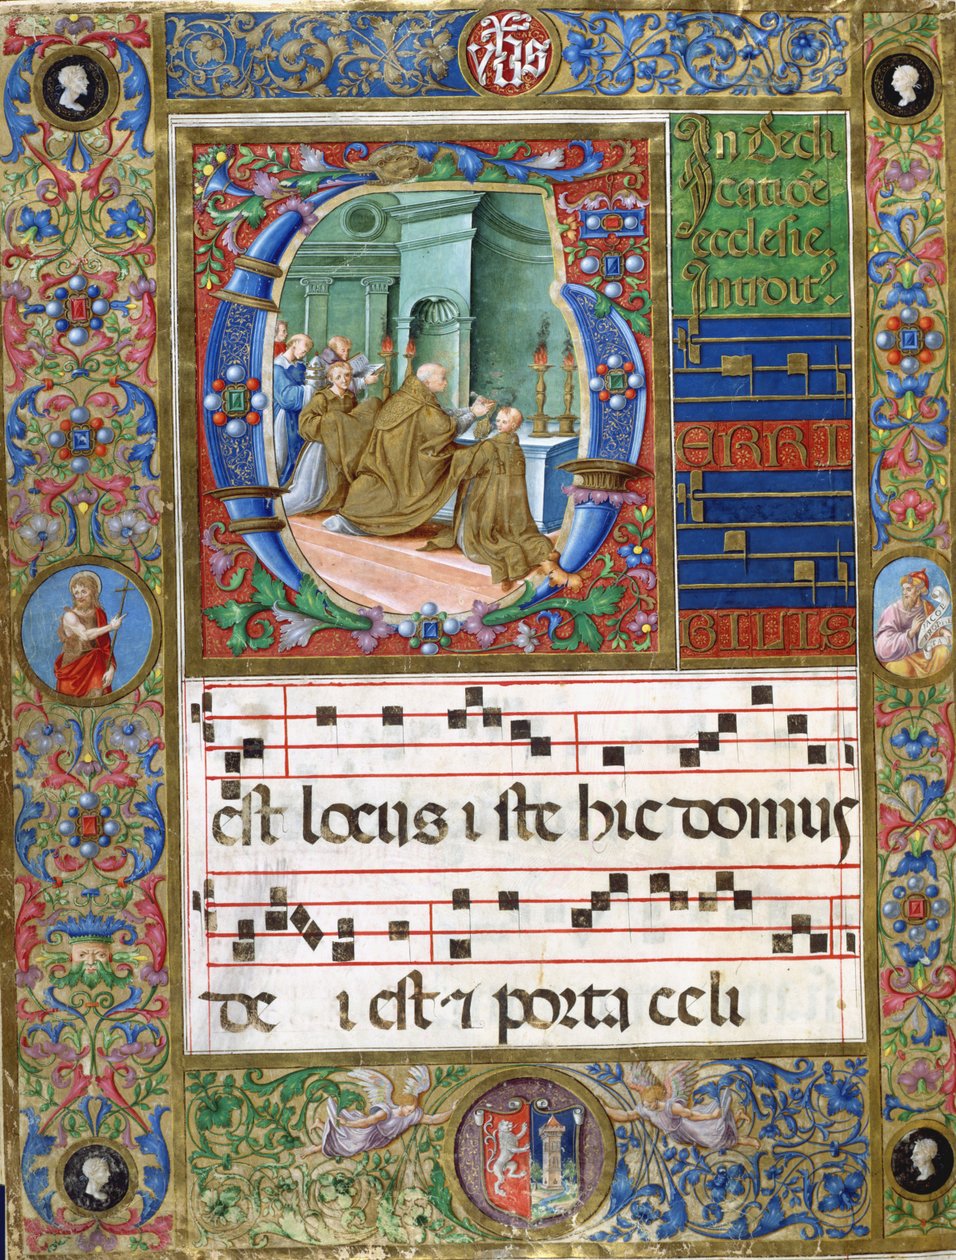 yhs
In Dedi
catiõe
ecclesie
Introitꝯ
TERRI
BILIS
est locus iste hic domus
dei est · 7 porta celi